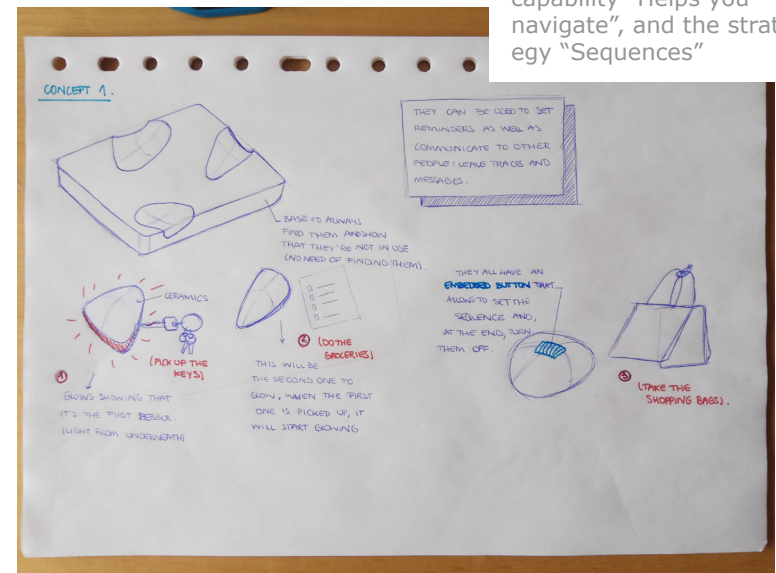 capability “Helps you
navigate”, and the strat-
egy “Sequences”
CONCEPT 1.
THEY CAN BE USED TO SET
REMINDERS AS WELL AS
COMMUNICATE TO OTHER
PEOPLE: LEAVE TRACES AND
MESSAGES.
BASE TO ALWAYS
FIND THEM AND SHOW
THAT THEY'RE NOT IN USE
(NO NEED OF FINDING THEM).
CERAMICS
(PICK UP THE
KEYS)
1
GLOWS SHOWING THAT
IT'S THE FIRST PEBBLE.
(LIGHT FROM UNDERNEATH)
2 (DO THE
GROCERIES)
THIS WILL BE
THE SECOND ONE TO
GLOW, WHEN THE FIRST
ONE IS PICKED UP, IT
WILL START GLOWING.
THEY ALL HAVE AN
EMBEDDED BUTTON THAT
ALLOWS TO SET THE
SEQUENCE AND,
AT THE END, TURN
THEM OFF.
3
(TAKE THE
SHOPPING BAGS).